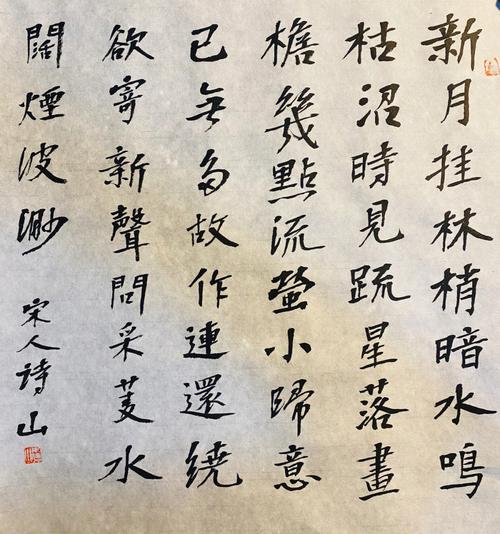 新月挂林梢暗水鳴
枯沼時見疏星落畫
檐幾點流螢小歸意
已無多故作連還繞
欲寄新聲問采菱水
闊煙波渺
宋人詩山